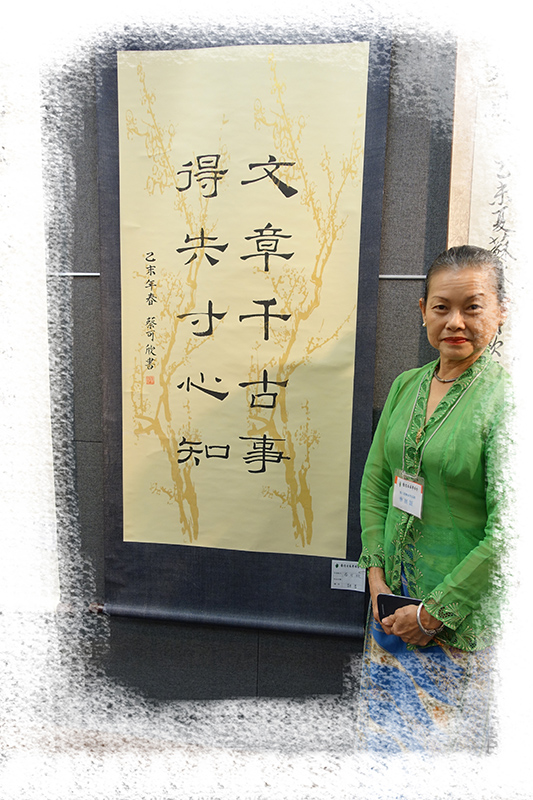 文章千古事
得失寸心知
乙未年春 蔡可欣書
乙未夏敬